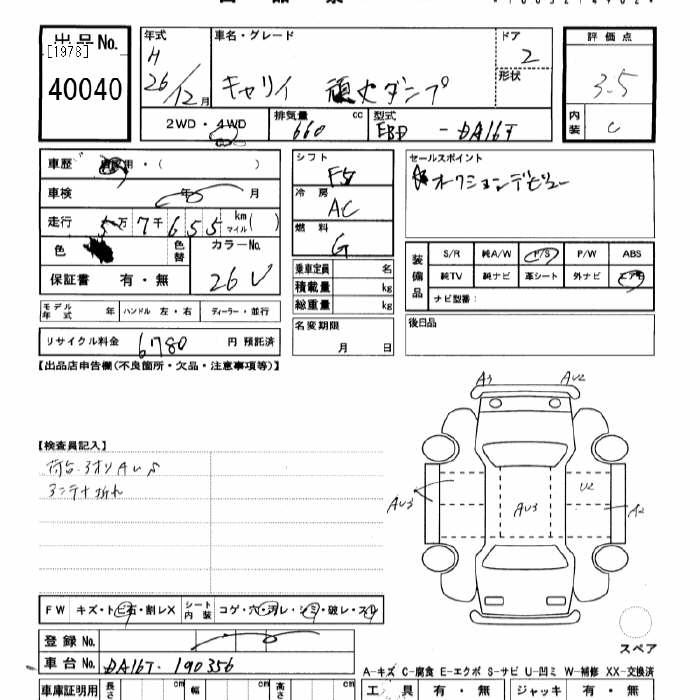 出品No.
[1978]
40040
年式
H
26/12月
車名・グレード
キャリイ 頑丈ダンプ
ドア
2
形状
評価点
3.5
内装
C
2WD・4WD
排気量 cc
660
型式
EBD-DA16T
車歴 用・( )
車検 年 月
走行 5万7千655 km マイル( )
色
色替
カラーNo.
26U
保証書 有・無
モデル年式 年 ハンドル 左・右 ディーラー・並行
リサイクル料金 6780 円 預託済
シフト
F5
冷房
AC
燃料
G
乗車定員 名
積載量 kg
総重量 kg
名変期限
月 日
セールスポイント
オークションデビュー
装備品
S/R 純A/W P/S P/W ABS
純TV 純ナビ 革シート 外ナビ エアB
ナビ型番:
後日品
【出品店申告欄(不良箇所・欠品・注意事項等)】
【検査員記入】
荷台・アオリAU5
アンテナ折れ
A3 AU2
AU3 AU3 U2 A2
FW キズ・トビ石・割レX
シート内装 コゲ・穴・汚レ・シミ・破レ・スレ
登録No.
車台No. DA16T-190356
スペア
A-キズ C-腐食 E-エクボ S-サビ U-凹ミ W-補修 XX-交換済
車庫証明用 長さ cm 幅 cm 高さ cm
工具 有・無 ジャッキ 有・無